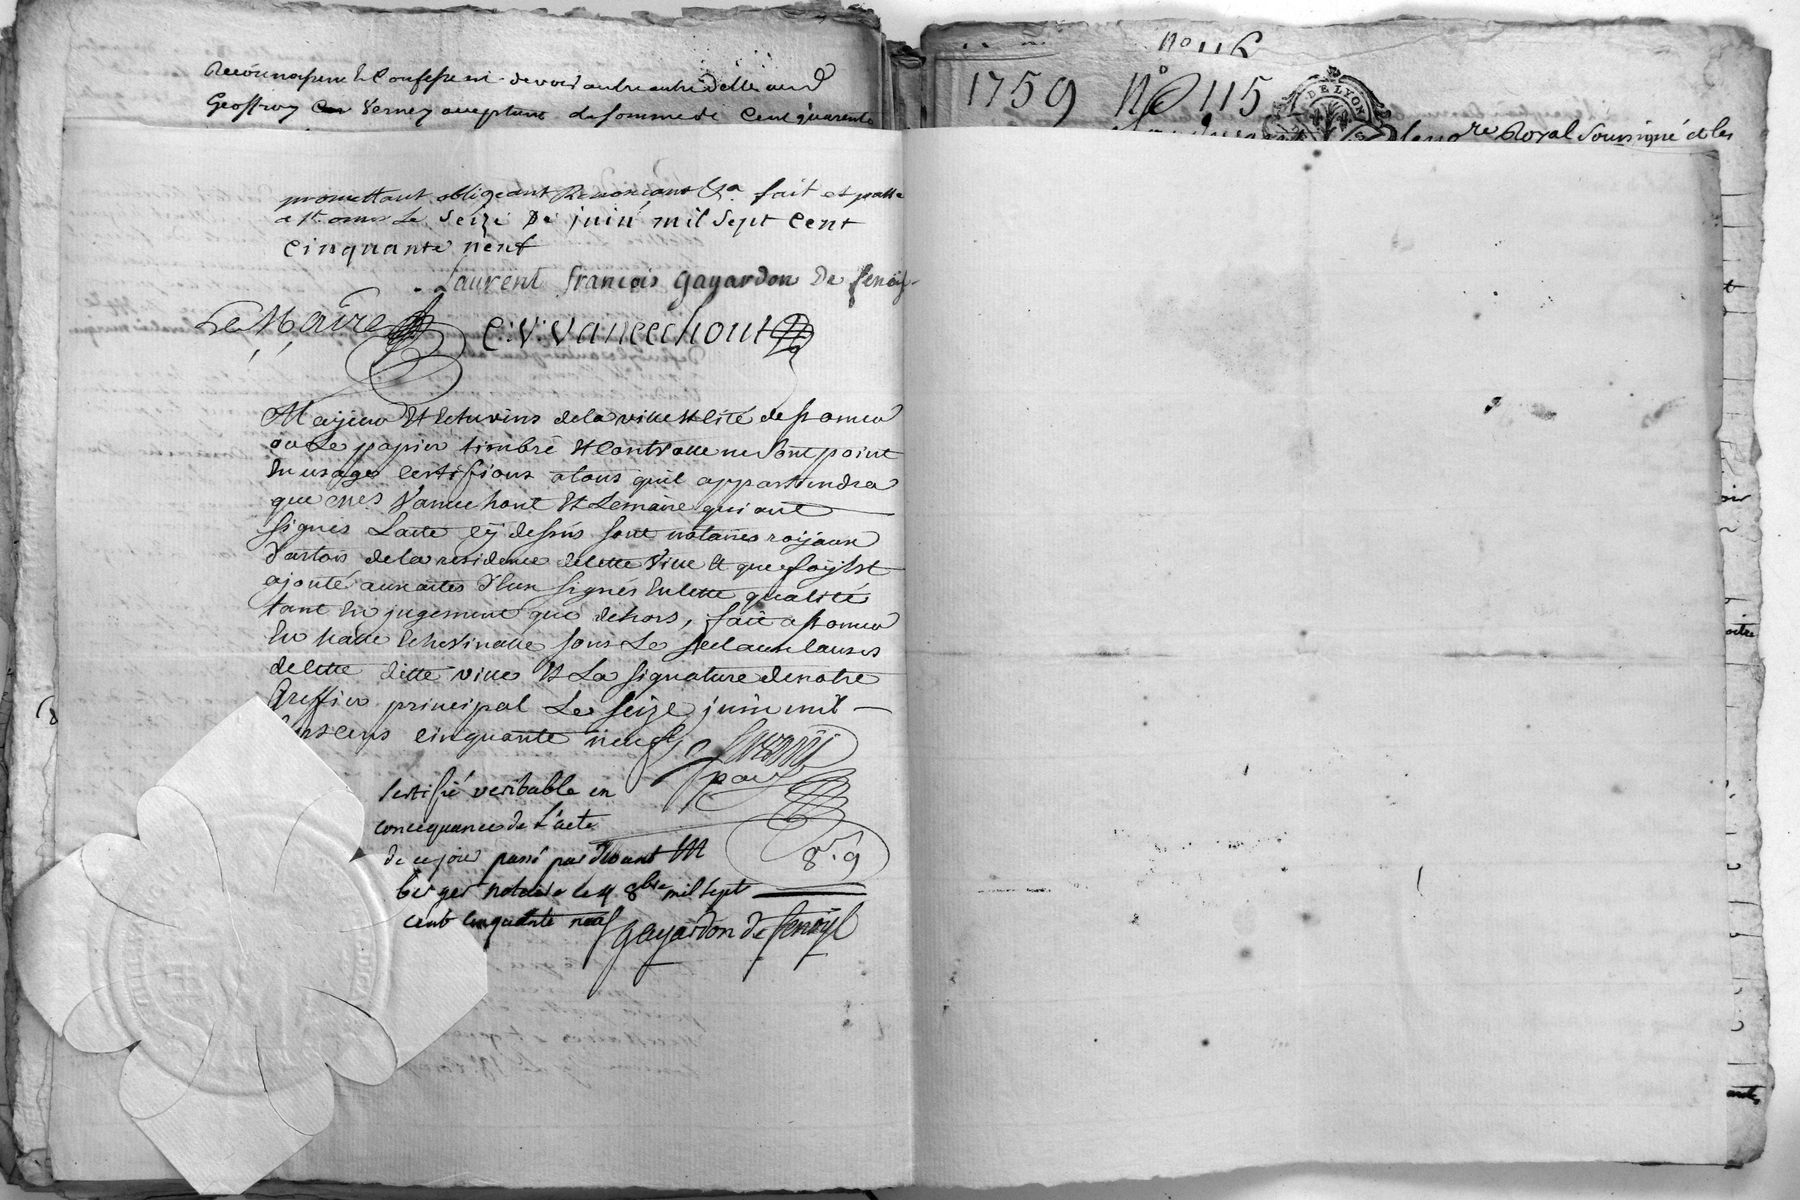 Reconnoissent & Confessent devoir
Geoffroy Verney acceptant la somme de Cent quarente
promettant obligeant Renoncant &a. fait et passé
a st omer Le Seize De juin mil sept cent
cinquante neuf
Laurent françois gayardon De fenoÿl
Le Maire
C: V: Vaneechout
Mayeur Et Echevins de la ville Et Cité de st omer
ou Le papier timbré Et Controlle ne sont point
En usage Certifions a tous quil appartiendra
que Mes Vaneechout Et Lemaire qui ont
signés Lacte cÿ dessus sont notaires roÿaux
dartois de la residence de cette Ville Et que foÿ Est
ajouté aux actes d'Eux signés En cette qualité
tant En jugement que dehors, fait a st omer
En halle Echevinalle sous Le scel aux causes
de cette ditte ville Et La signature de notre
Greffier principal Le seize juin mil
sept cens cinquante neuf
Certifié veritable en
concequance de L'acte
de ce jour passé par devant M
berger notaire le 4 8bre mil sept
cent cinquante neuf
8. 9
gayardon de fenoÿl
No 116
1759 No 115
DE LYON
Royal Soussigné et les